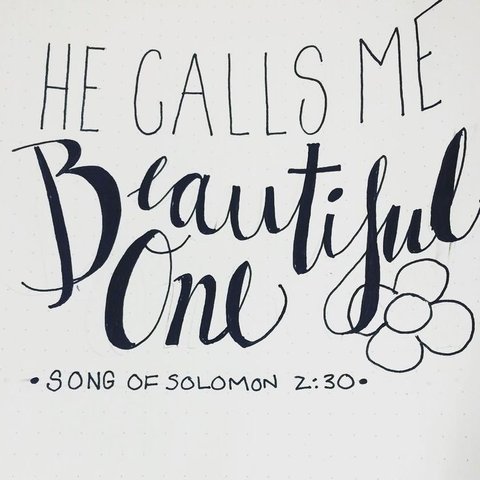 HE CALLS ME
Beautiful
One
• SONG OF SOLOMON 2:30 •